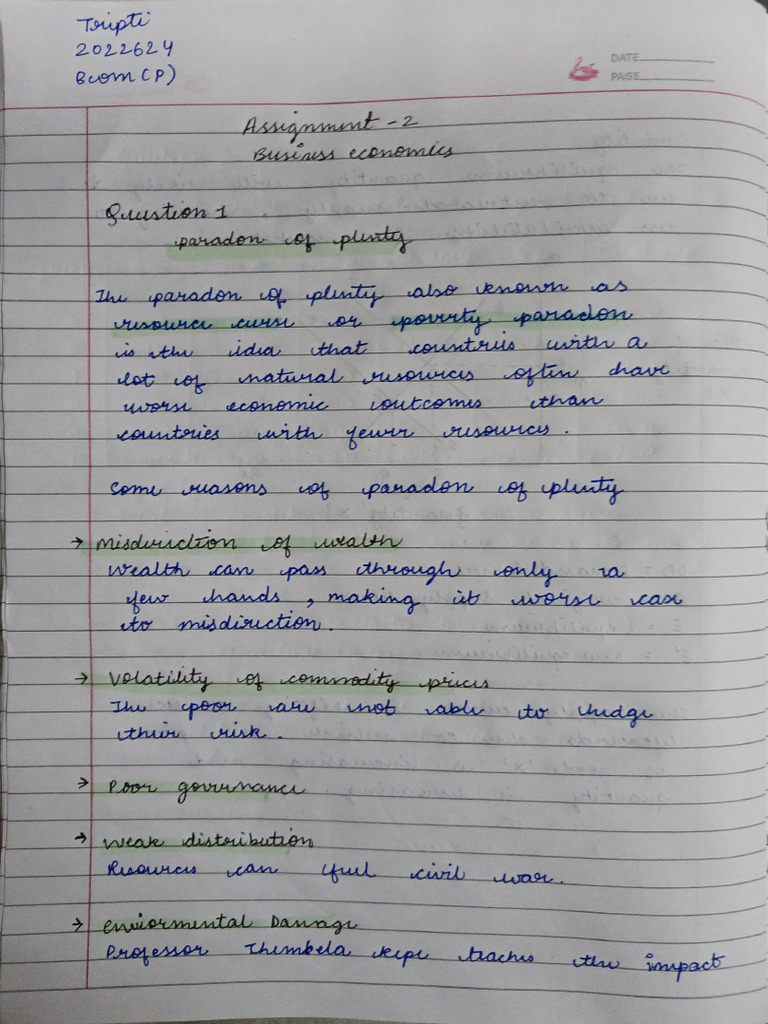 Tripti
2022624
Bcom (P)
DATE
PAGE
Assignment - 2
Business economics
Question 1
paradon of plenty
The paradon of plenty also known as
resource curse or poverty paradon
is the idea that countries with a
lot of natural resources often have
worse economic outcomes than
countries with fewer resources.
Some reasons of paradon of plenty
→ Misdirection of wealth
Wealth can pass through only a
few hands, making it worse case
to misdirection.
→ Volatility of commodity prices
The poor are not able to hedge
their risk.
→ Poor governance
→ Weak distribution
Resources can fuel civil war.
→ Enviormental Damage
Professor Thembela kepe teaches the impact